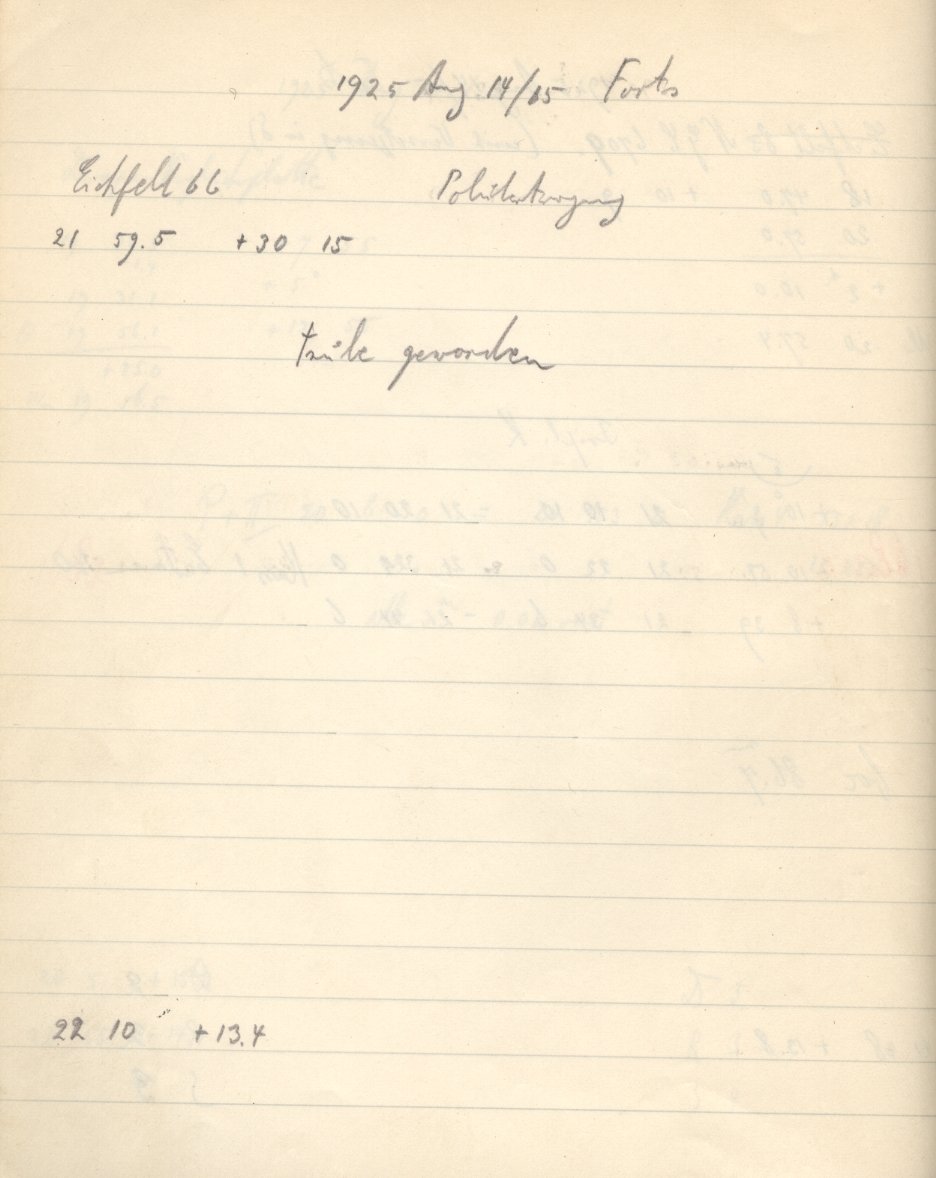 1925 Aug 14/15 Forts
Eichfeld 66 Polübertragung
21 59.5 +30 15
trübe geworden
22 10 +13.4